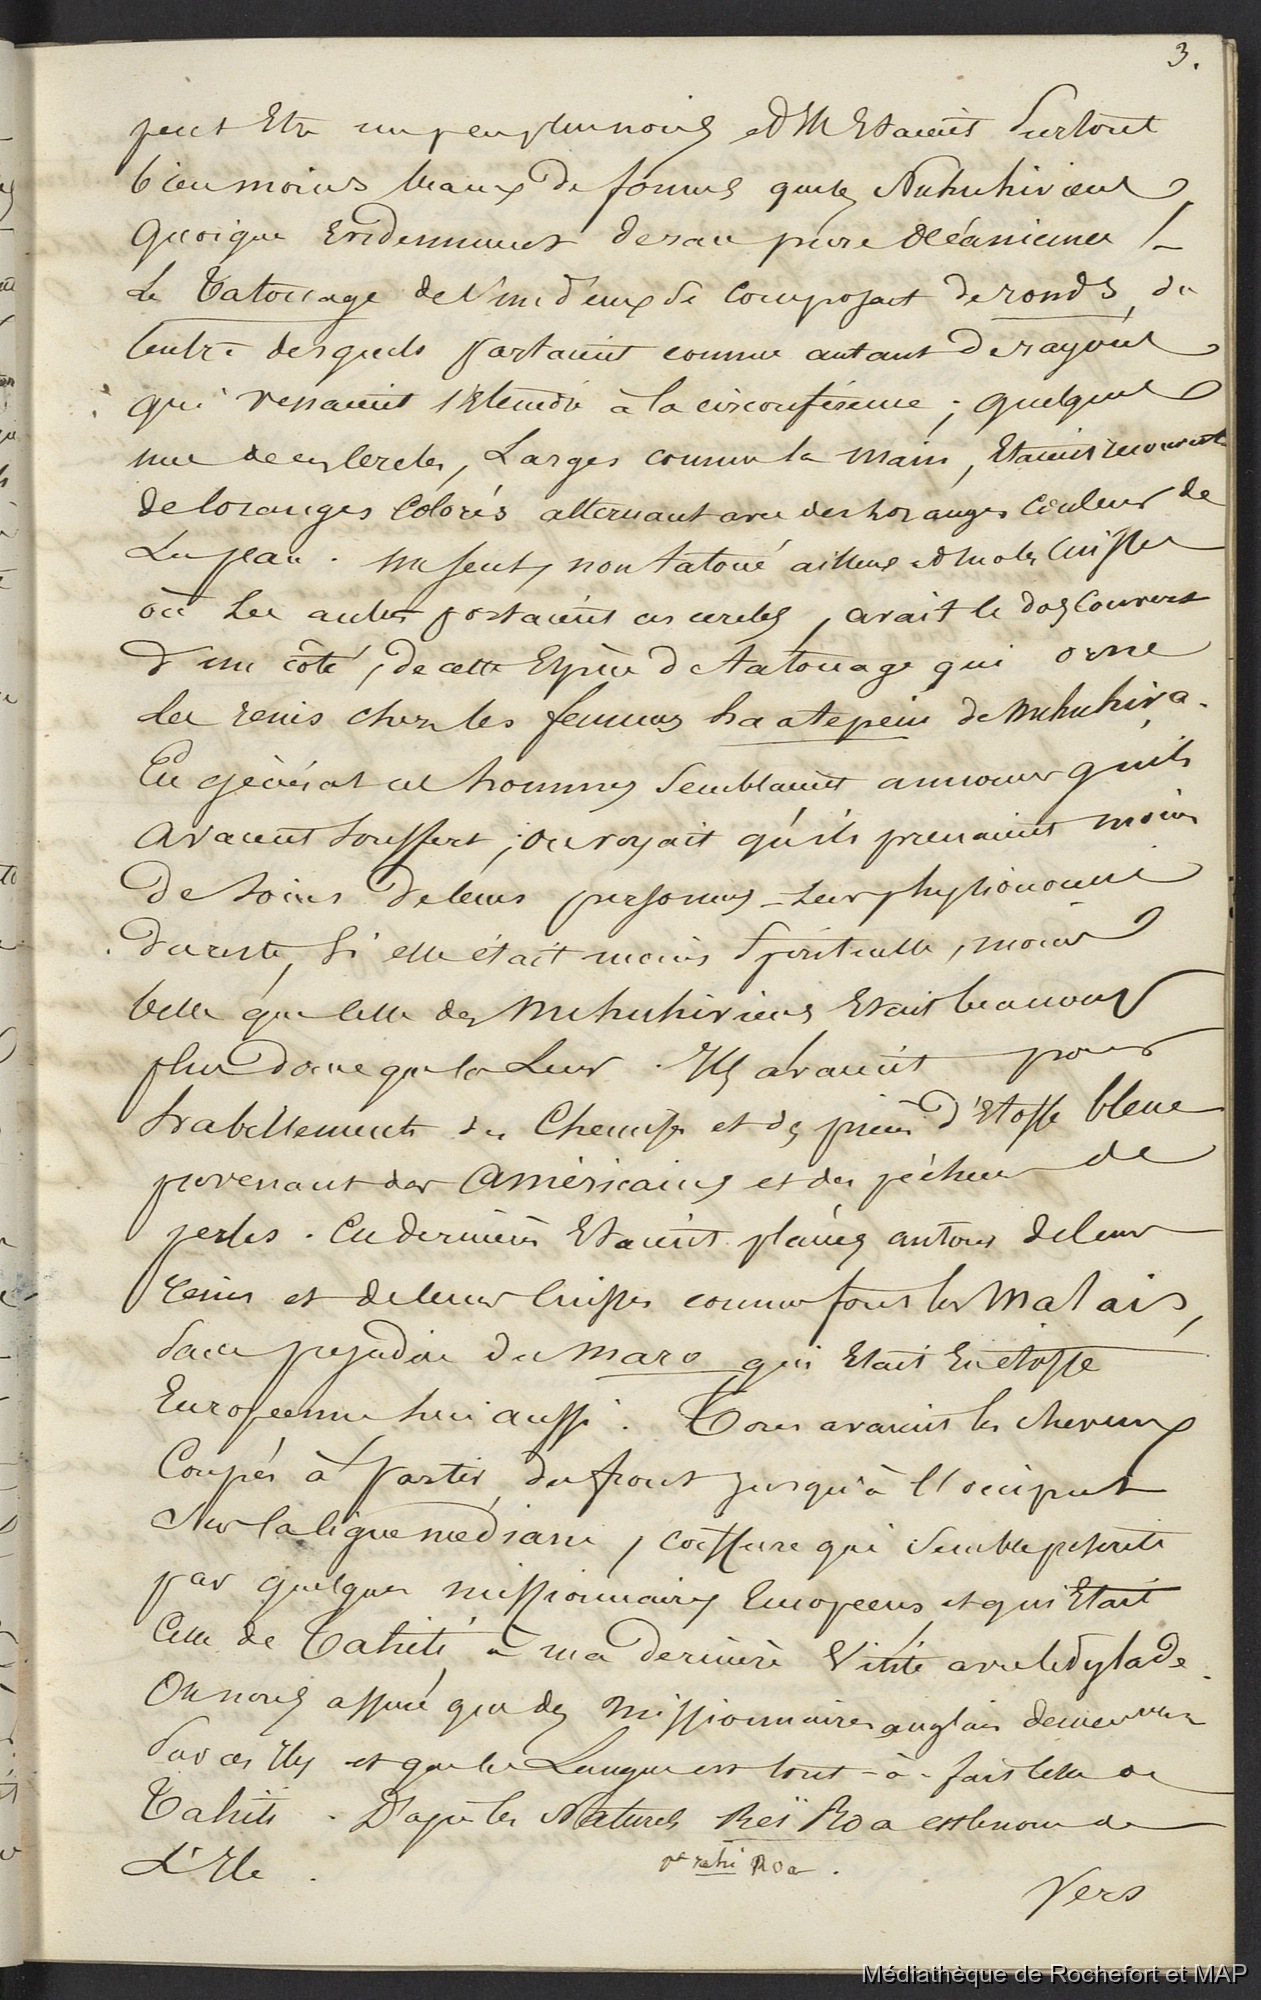 3.
peut Etre un peu plus noirs et Ils Etaient Surtout
bien moins beaux de formes que les Nukuhiviens,
quoique Evidemment de race pure océanienne !_
Le Tatouage de l'un d'eux Se Composait de ronds, du
Centre desquels partaient comme autant de rayons
qui venaient s'Etendre à la circonférence ; quelques
uns de ces Cercles, Larges comme la main, Etaient recouverts
de losanges Colorés alternant avec des losanges Couleur de
La peau. Un seul, non tatoué ailleurs et sur les Cuisses
où Les autres portaient ces cercles, avait le dos Couvert
d'un côté, de cette Espèce de tatouage qui orne
les reins chez les femmes haatepeiu de Nukuhiva.
En général ces hommes Semblaient annoncer qu'ils
avaient Souffert ; on voyait qu'ils prenaient moins
de Soins de leurs personnes _ Leur physionomie
du reste, Si elle était moins Spirituelle, moins
belle que Celle des Nukuhiviens Etait beaucoup
plus douce que la Leur. Ils avaient pour
habillements des Chemises et des pièces d'Etoffe bleue
provenant des Américains et des pécheurs de
perles. Ces dernières Etaient placées autour de leurs
reins et de leurs Cuisses comme font les Malais,
Sans préjudice du maro qui Etait En étoffe
Européenne lui aussi. Tous avaient les cheveux
Coupés à partir du front jusqu'à l'occiput
Sur la ligne médiane, coiffure qui Semble prescrite
par quelques missionnaires Européens et qui Etait
Celle de Tahiti à ma dernière Visite avec le Pylade.
On nous assure que des Missionnaires anglais demeurent
Sur ces Iles et que la Langue est tout-à-fait Celle de
Tahiti. D'après les Naturels Reï Roa est le nom de
L'Ile.
pt rahi Roa.
Vers
Médiathèque de Rochefort et MAP